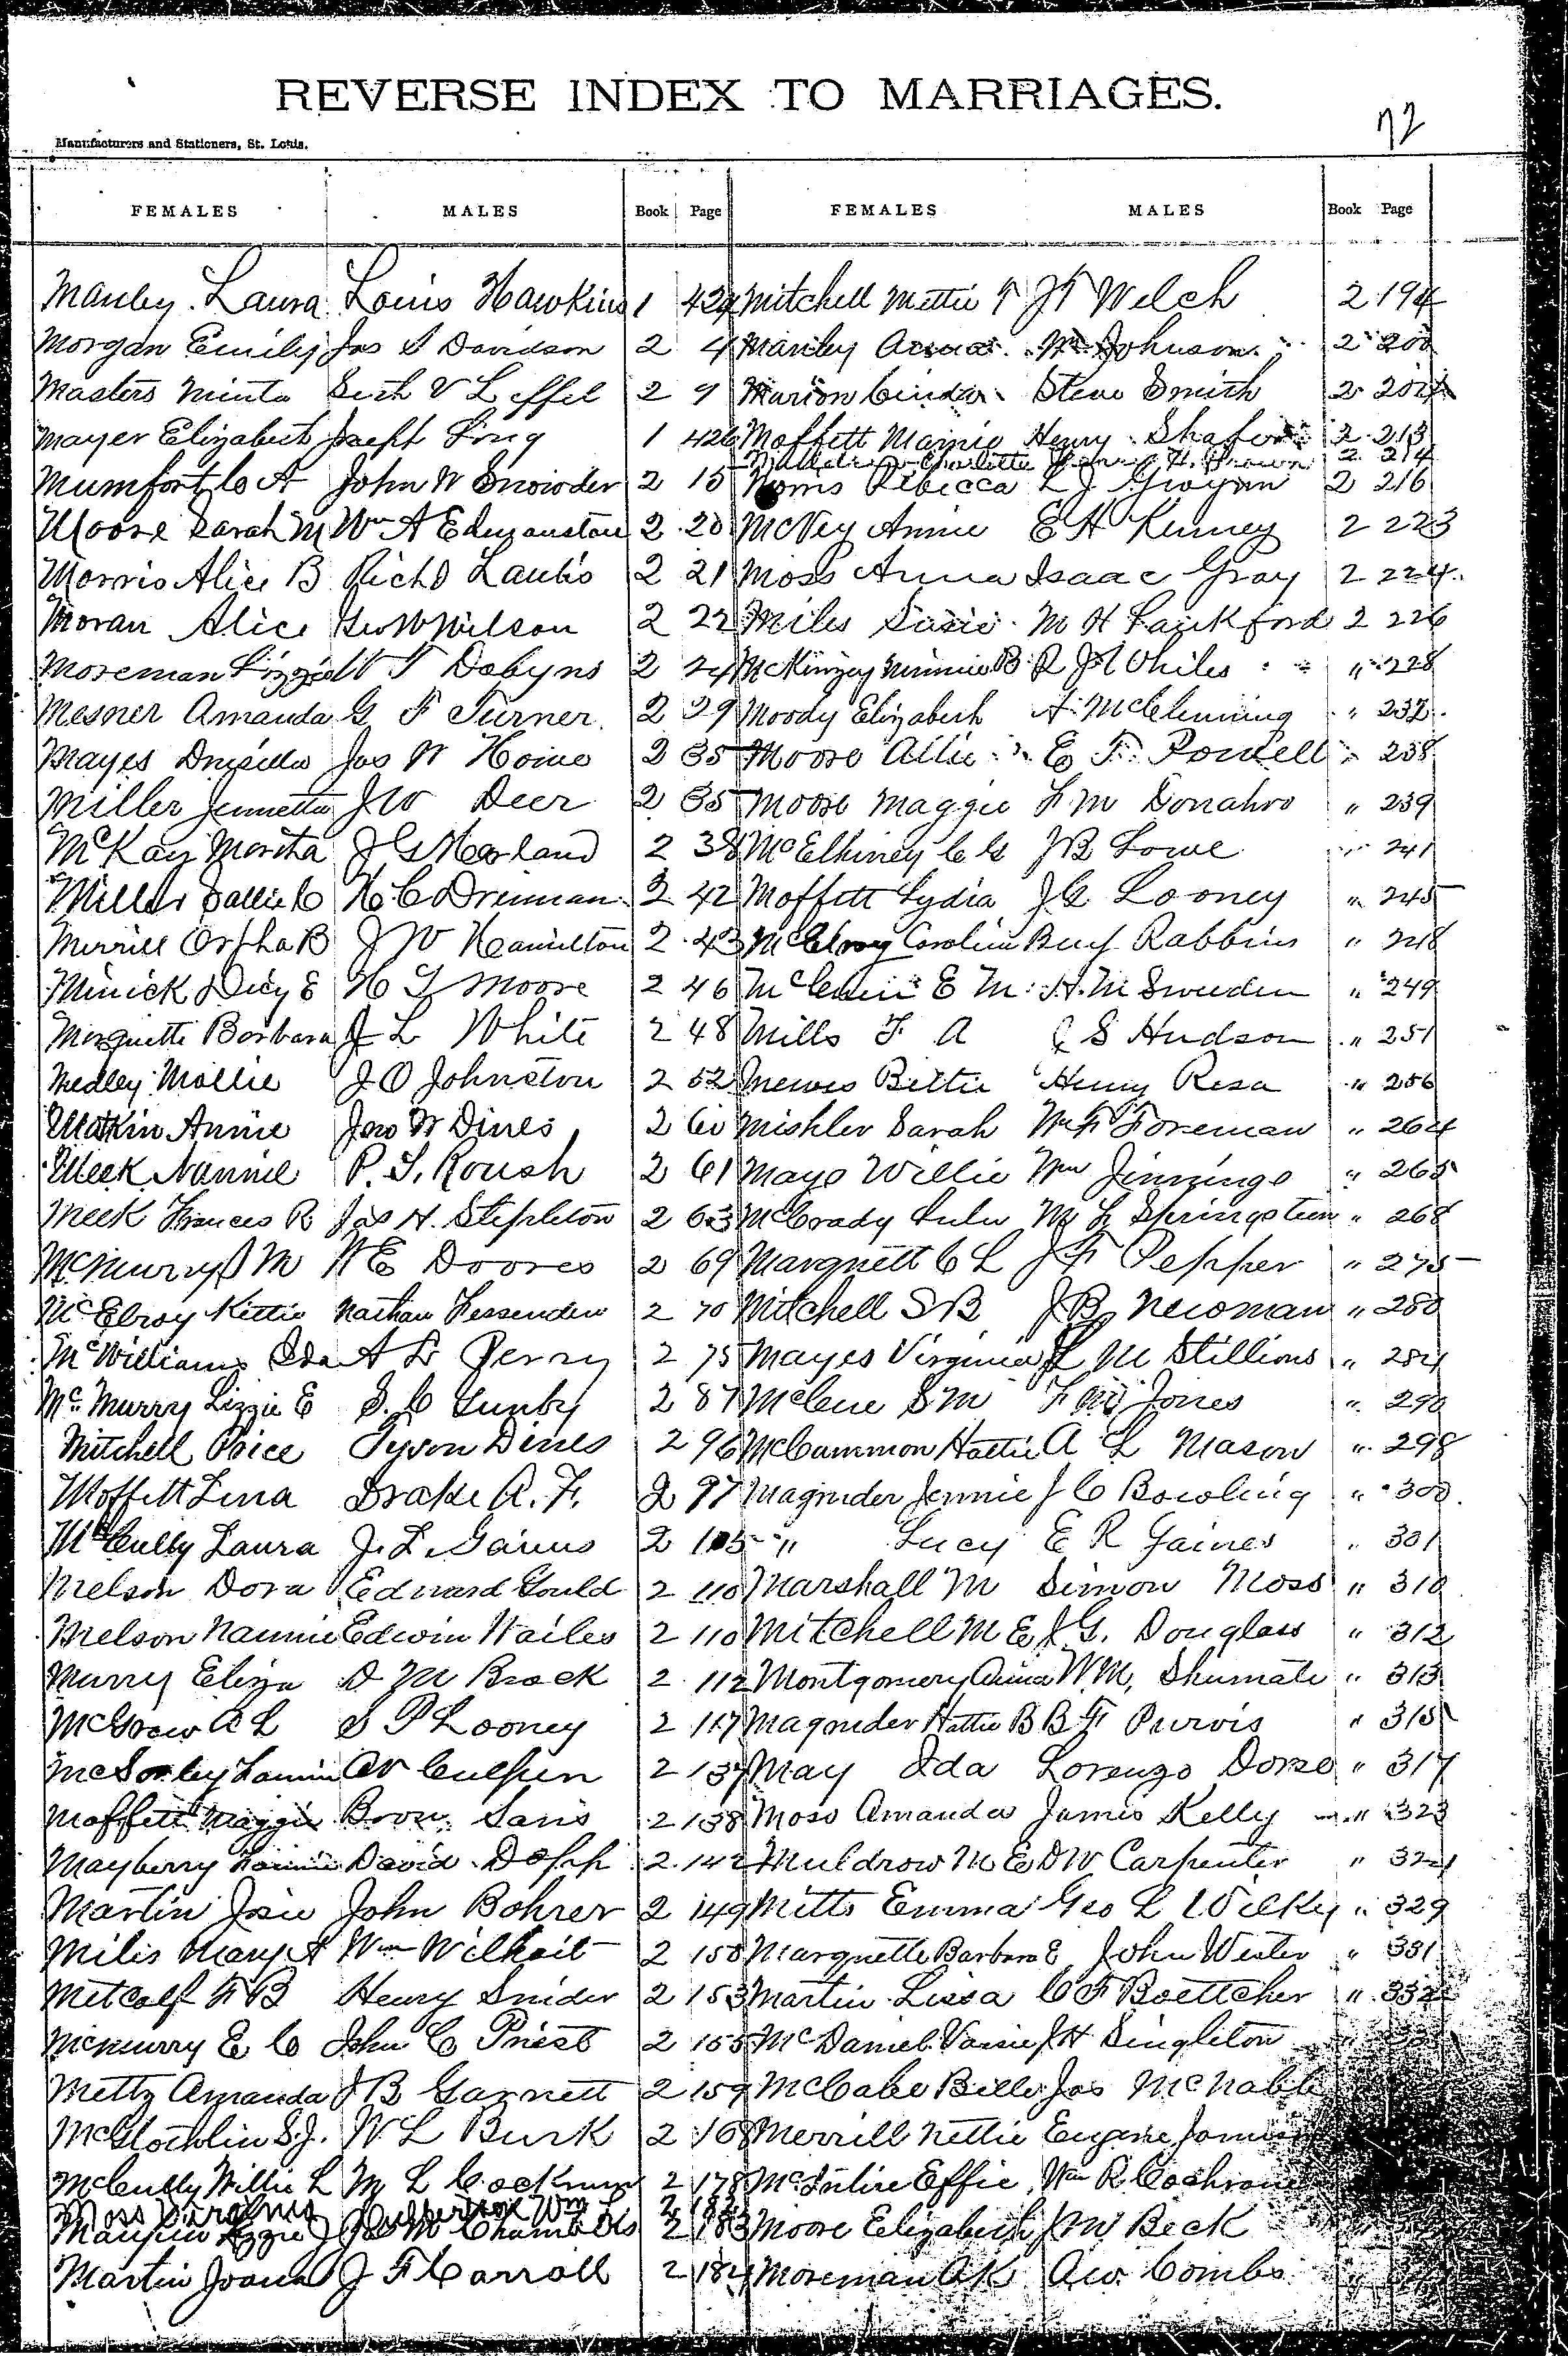 REVERSE INDEX TO MARRIAGES.
72
Manufacturers and Stationers, St. Louis.
FEMALES MALES Book Page FEMALES MALES Book Page
Manley Laura Louis Hawkins 1 424 Mitchell Mettie T J T Welch 2 194
Morgan Emily Jas S Davidson 2 4 Manley Wm Johnson 2 200
Masters Minta Seth V Leffel 2 9 Marion Cinda Steve Smith 2 202
Mayer Elizabeth Joseph Long 1 426 Moffett Mamie Henry Shafer 2 213
Charlotte H. Brown 2 214
Mumfort Co A John W Snowder 2 15 Morris Rebecca L J Grogan 2 216
Moore Sarah M Wm A Edmanston 2 20 McVey Annie E H Kinney 2 223
Morris Alice B Richd Laubs 2 21 Moss Anna Isaac Gray 2 224
Moran Alice Geo W Wilson 2 22 Miles Susie M H Lankford 2 226
Moreman Lizzie W T Dobyns 2 24 McKinzey Minnie B R J Whiles " 228
Mesner Amanda G F Turner 2 29 Moody Elizabeth A McClenning " 232
Mayes Drusilla Jas W Howe 2 35 Moore Allie E F Powell " 238
Miller Jennetta J W Deer 2 35 Moore Maggie F M Donahro " 239
McKay Martha J G Horland 2 38 McElhiney C G J B Lowe " 241
Miller Sallie C H C Drennan 2 42 Moffett Lydia J C Looney " 245
Merrill Orpha B J W Hamilton 2 43 McElroy Caroline Benj Rabbins " 248
Minick Dicy E H T Moore 2 46 E M H. M Sweeden " 249
Morquette Barbara J L White 2 48 Mills F A C S Hudson " 251
Medley Mollie J O Johnston 2 52 Mewes Bettie Henry Resa " 256
Matkin Annie Jno W Dines 2 60 Mishler Sarah Wm F Foreman " 264
Meek Nannie P. S. Roush 2 61 Mayo Willie Wm Jinnings " 265
Meek Frances R Jas H. Stepleton 2 63 McCrady Lulu M L Springsteen " 268
McMurry J M W E Doores 2 69 Marquett C L J F Pepper " 275
McElroy Kittie Nathan Fessenden 2 70 Mitchell S B J B Newman " 280
McWilliams Ida A L Perry 2 75 Mayes Virginia L M Stillions " 284
McMurry Lizzie E S. C Gunby 2 87 McCune S M F M Jones " 290
Mitchell Poice Tyson Dines 2 96 McCammon Hattie A L Mason " 298
Moffett Lina Drake A. F. 2 97 Magruder Jennie J C Bowling " 300
McCully Laura J. L. Gaines 2 105 " Lucy E R Gaines " 301
Melson Dora Edward Gould 2 110 Marshall M Simon Moss " 310
Melson Nannie Edwin Wailes 2 110 Mitchell M E J G. Douglass " 312
Murry Eliza D M Brock 2 112 Montgomery Anna W. M. Shumate " 313
McGrew A L S P Looney 2 117 Magruder Hattie B B F Purvis " 315
McSorley Fannie A V Culpen 2 137 May Ida Lorenzo Dorse " 317
Moffett Maggie Sans 2 138 Moss Amanda James Kelly " 323
Mayberry Fannie David Dopp 2 142 Muldrow M E D W Carpenter " 324
Martin Josie John Bohrer 2 149 Mitts Emma Geo L Wilkey " 329
Milis Mary A Wm Wilhoit 2 150 Marquette Barbara E John Wester " 331
Metcalf F B Henry Snider 2 153 Martin Lissa C F Boettcher " 332
McMurry E C John C Priest 2 155 McDaniel J H Singleton
Mettz Amanda J B Garnett 2 159 McCabe Belle Jas McNabb
McGlothlin S. J. W L Burk 2 168 Merrill Nettie Eugene
McCully Willie L M L Cockrum 2 178 McIntire Effie Wm R Cochrane
Moss Culbertson Wm L 2 182
Maupin Lizzie J Jas M Chambers 2 183 Moore Elizabeth J W Beck
Martin Joana J F Carroll 2 184 Moreman A K A W Combs